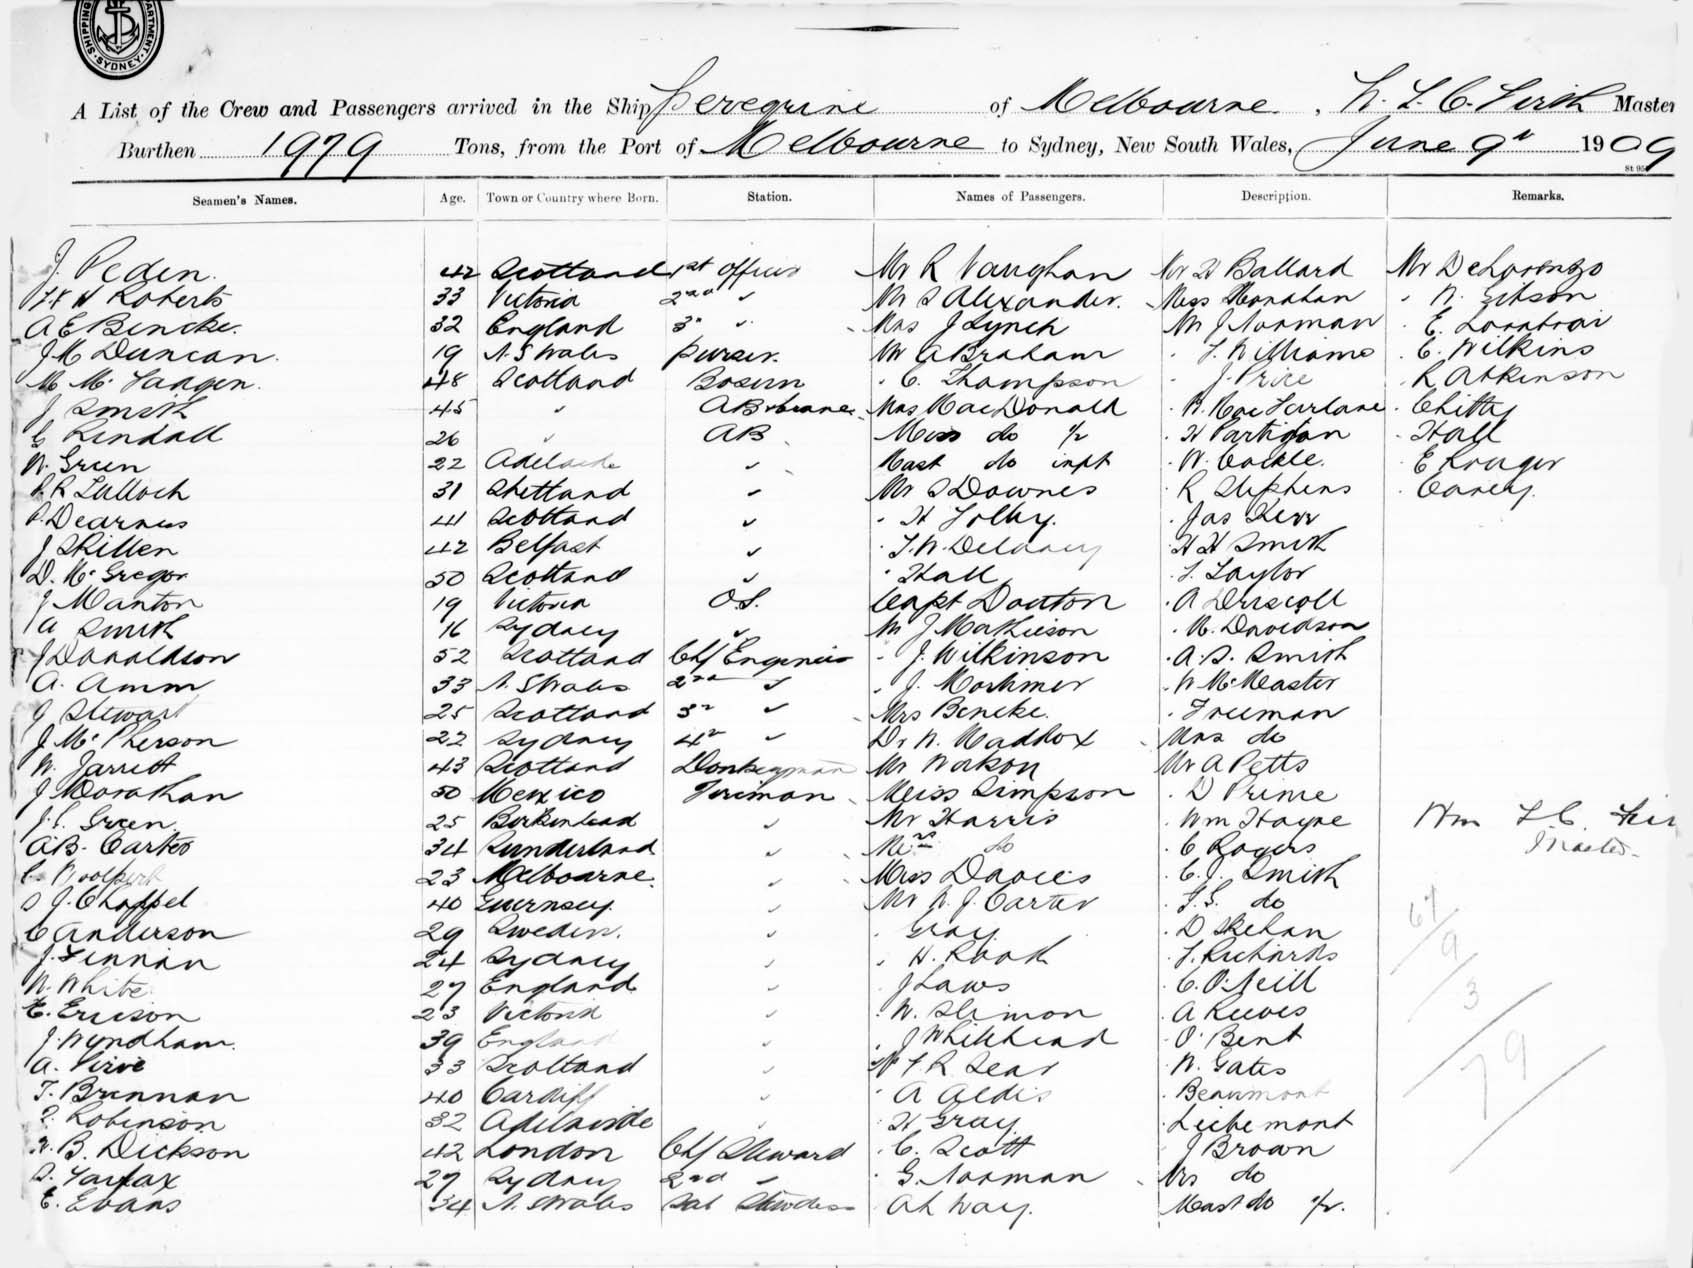 SHIPPING DEPARTMENT · SYDNEY ·
A List of the Crew and Passengers arrived in the Ship Peregrine of Melbourne, W. L. C. Firth Master
Burthen 1979 Tons, from the Port of Melbourne to Sydney, New South Wales, June 9th 1909
St 95
Seamen's Names. Age. Town or Country where Born. Station. Names of Passengers. Description. Remarks.
J. Peden. 42 Scotland 1st Officer Mr R Vaughan Mr H Ballard Mr De Lorenzo
Roberts 33 Victoria 2nd " Mr S Alexander. Miss Monahan " W. Gibson
A E Bencke. 32 England 3rd " Mrs J Lynch Mr J Norman " E.
J M Duncan. 19 N. S Wales purser. Mr A Braham " T. Williams " C. Wilkins
48 Scotland Bosun " C. Thompson " J. Price " R Atkinson
J Smith 45 " AB Mrs MacDonald " MacFarlane " Chitty
G Kendall 26 " AB Miss do ½ " H Partigan " Hall
W. Green 22 Adelaide " Mast do inft " W. Cockle. " E Kruger
R Tulloch 31 Shetland " Mr S Downes " R Stephens " Carey.
P. Dearness 41 Scotland " " H Tolhy. " Jas Kerr
J Skillen 42 Belfast " " T. W. Delaney " H H Smith
D. McGregor 50 Scotland " " Hall " T. Taylor
J Manton 19 Victoria O.S. Capt Douton " A Driscoll
A Smith 16 Sydney " Mr J Mathieson " R. Davidson
J Donaldson 52 Scotland Chf Engineer " J. Wilkinson " A. S. Smith
A. Amm 33 N. S Wales 2nd " " J. Mortimer " W McMaster
J Stewart 25 Scotland 3rd " Mrs Bencke. " Freeman
J. McPherson 22 Sydney 4th " Dr W. Maddox Mrs do
W. Jarrett 43 Scotland Donkeyman Mr Workon Mr A Petts
J Monahan 50 Mexico Fireman Miss Simpson " D Prime
J. E. Green. 25 Birkenhead " Mr Harris " Wm Hayne Wm L. C. Fir
A. B. Carter 34 Sunderland " Mrs do " C Rogers Master.
C. 23 Melbourne. " Miss Davies " C. J. Smith
S J. Chappel 40 Guernsey. " Mr W. J. Carter " F. S. do
C Anderson 29 Sweden. " " Gray " D Skehan 67
J. Finnan 24 Sydney " " H. Rook " T. Richards 9
W. White 27 England " " J Laws " C. O'Neill 3
E. Ericson 23 Victoria " " W. Slimon " A Reeves
J. Wyndham. 39 England " " J Whitehead " O. Bent 79
A. Pirie 33 Scotland " Mr F. R. Sear " W. Gates
T. Brennan 40 Cardiff " " A Aldis " Beaumont
Robinson 32 Adelaide " " H Gray " Liebemont
B. Dickson 42 London Chf Steward " C. Scott " J Brown
S. Fairfax 27 Sydney 2nd " " G. Norman Mrs do
E. Evans 34 N. S Wales Sal Stewdess Ah Way. Mast do ½.